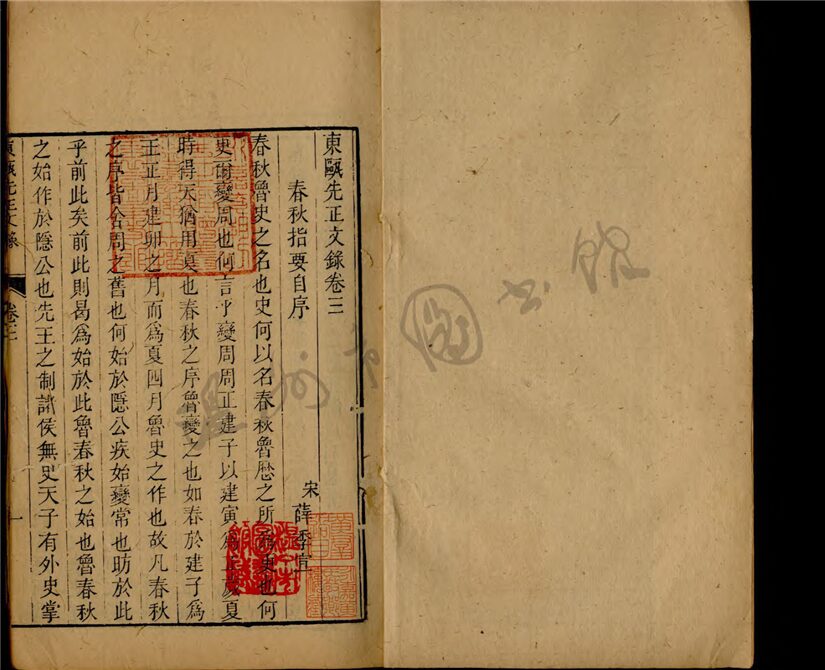 東甌先正文錄卷三
春秋指要自序
宋 薛季宣
春秋魯史之名也史何以名春秋魯曆之所變更也何
史爾變周也何言乎變周周正建子以建寅爲正歲夏
時得天猶用夏也春秋之序魯變之也如春於建子爲
王正月建卯之月而爲夏四月魯史之作也故凡春秋
之序皆舍周之舊也何始於隱公疾始變常也昉於此
乎前此矣前此則曷爲始於此魯春秋之始也魯春秋
之始作於隱公也先王之制諸侯無史天子有外史掌
東甌先正文錄 卷三 一
溫州市圖書館